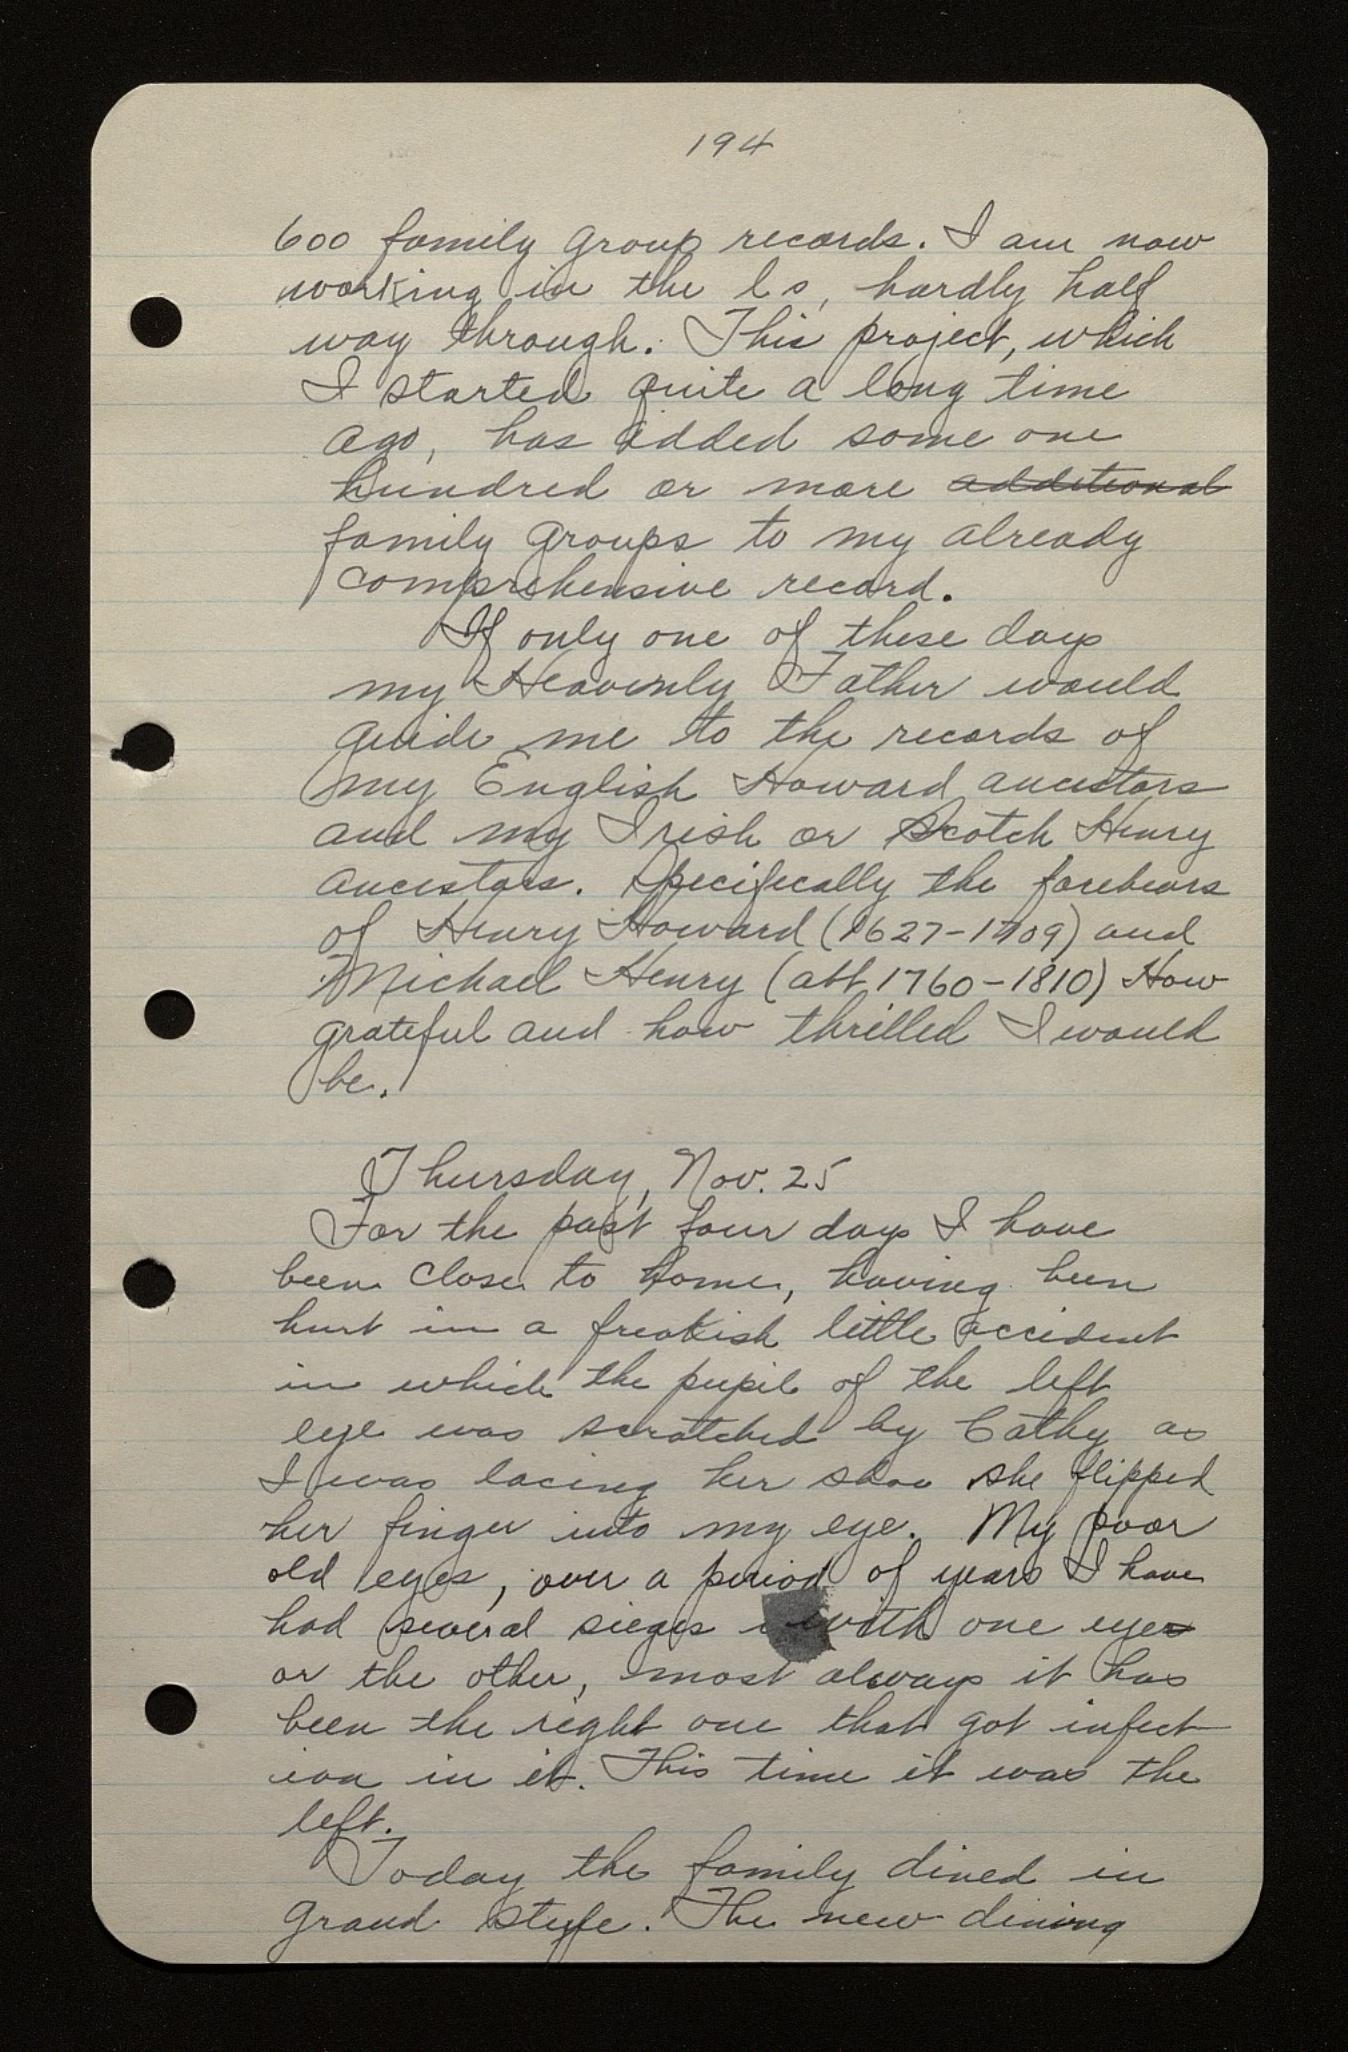 194
600 family group records. I am now
working in the ls, hardly half
way through. This project, which
I started quite a long time
ago, has added some one
hundred or more additional
family groups to my already
comprehensive record.
If only one of these days
my Heavenly Father would
guide me to the records of
my English Howard ancestors
and my Irish or Scotch Henry
ancestors. Specifically the forebears
of Henry Howard (1627-1709) and
Michael Henry (abt 1760-1810) How
grateful and how thrilled I would
be.
Thursday, Nov. 25
For the past four days I have
been close to home, having been
hurt in a freakish little accident
in which the pupil of the left
eye was scratched by Cathy as
I was lacing her shoe she flipped
her finger into my eye. My poor
old eyes, over a period of years I have
had several sieges with one eye
or the other, most always it has
been the right one that got infect
ion in it. This time it was the
left.
Today the family dined in
grand style. The new dining